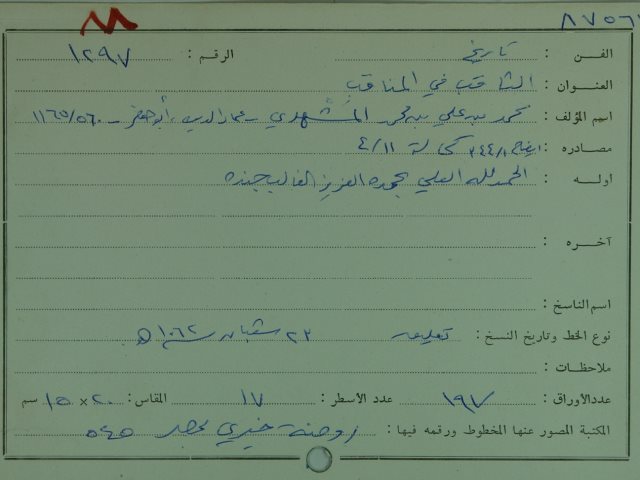 ٨٧٥٦
الفـن : تاريخ الرقم : ١٢٩٧
العنـوان : الثاقب في المناقب
اسم المؤلف : محمد بن علي بن محمد المَشْهدي - عماد الدين، أبو جعفر - ٥٦٠/١١٦٥
مصـادره : ايضاح ٣٤٤/١ كحالة ٤/١١
اولـه : الحمد لله العلي بمجده العزيز الغالب بجنده
آخـره :
اسم الناسخ :
نوع الخط وتاريخ النسخ : تعليق ٢٣ شعبان سنة ١٠٦٢ هـ
ملاحظـات :
عدد الأوراق : ١٩٧ عدد الأسطر : ١٧ المقاس : ٢٠ × ١٥ سم
المكتبة المصور عنها المخطوط ورقمه فيها : روضة خيري بمصر ٥٤٥